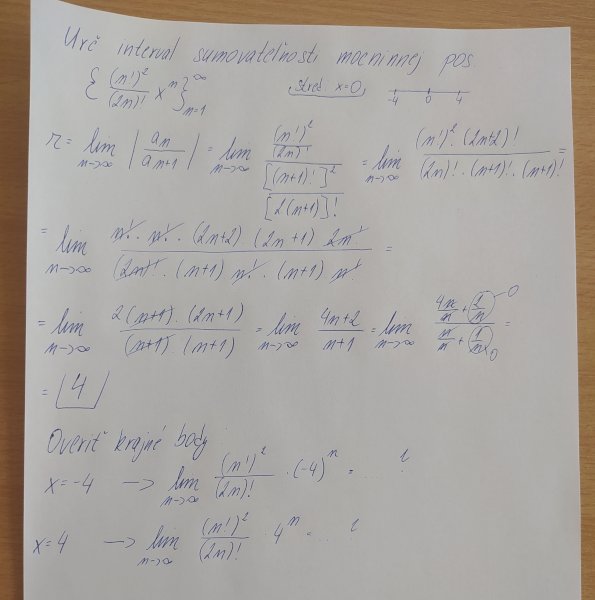 Urč interval sumovateľnosti mocninnej pos.
{ (n!)² / (2n)! xⁿ }∞ n=1 stred: x=0 -4 0 4
r = lim n→∞ | aₙ / aₙ₊₁ | = lim n→∞ ((n!)² / (2n)!) / ([(n+1)!]² / [2(n+1)]!) = lim n→∞ (n!)² · (2n+2)! / (2n)! · (n+1)! · (n+1)! =
= lim n→∞ n! · n! · (2n+2) · (2n+1) 2n! / (2n)! · (n+1) n! · (n+1) n! =
= lim n→∞ 2(n+1) · (2n+1) / (n+1) · (n+1) = lim n→∞ 4n+2 / n+1 = lim n→∞ (4n/n + (2/n)→0) / (n/n + (1/n)→0) =
= 4
Overiť krajné body
x = -4 → lim n→∞ (n!)² / (2n)! · (-4)ⁿ = .... ?
x = 4 → lim n→∞ (n!)² / (2n)! · 4ⁿ = ... ?